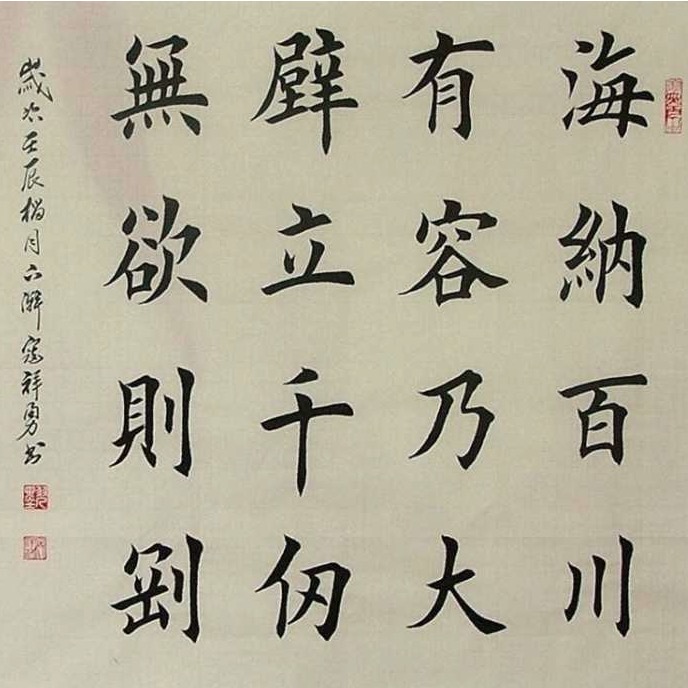 海納百川
有容乃大
壁立千仞
無欲則剛
歲次壬辰榴月下澣寇祥勇书